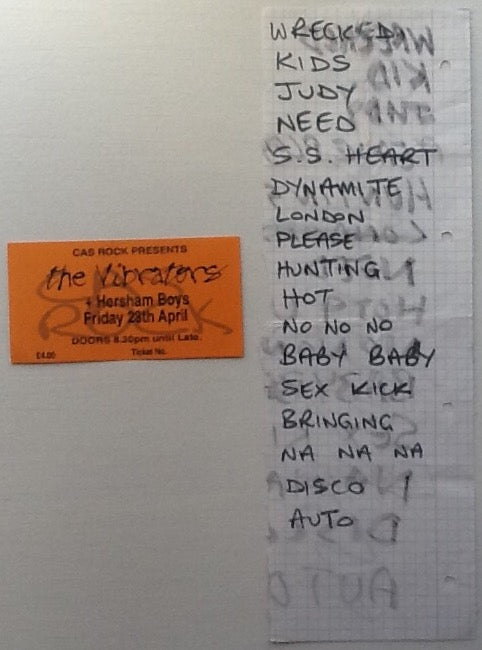 CAS ROCK PRESENTS
the Vibrators
+ Hersham Boys
Friday 28th April
DOORS 8.30pm until Late.
£4.00 Ticket No.
CAS ROCK
WRECKED
KIDS
JUDY
NEED
S.S. HEART
DYNAMITE
LONDON
PLEASE
HUNTING
HOT
NO NO NO
BABY BABY
SEX KICK
BRINGING
NA NA NA
DISCO
AUTO